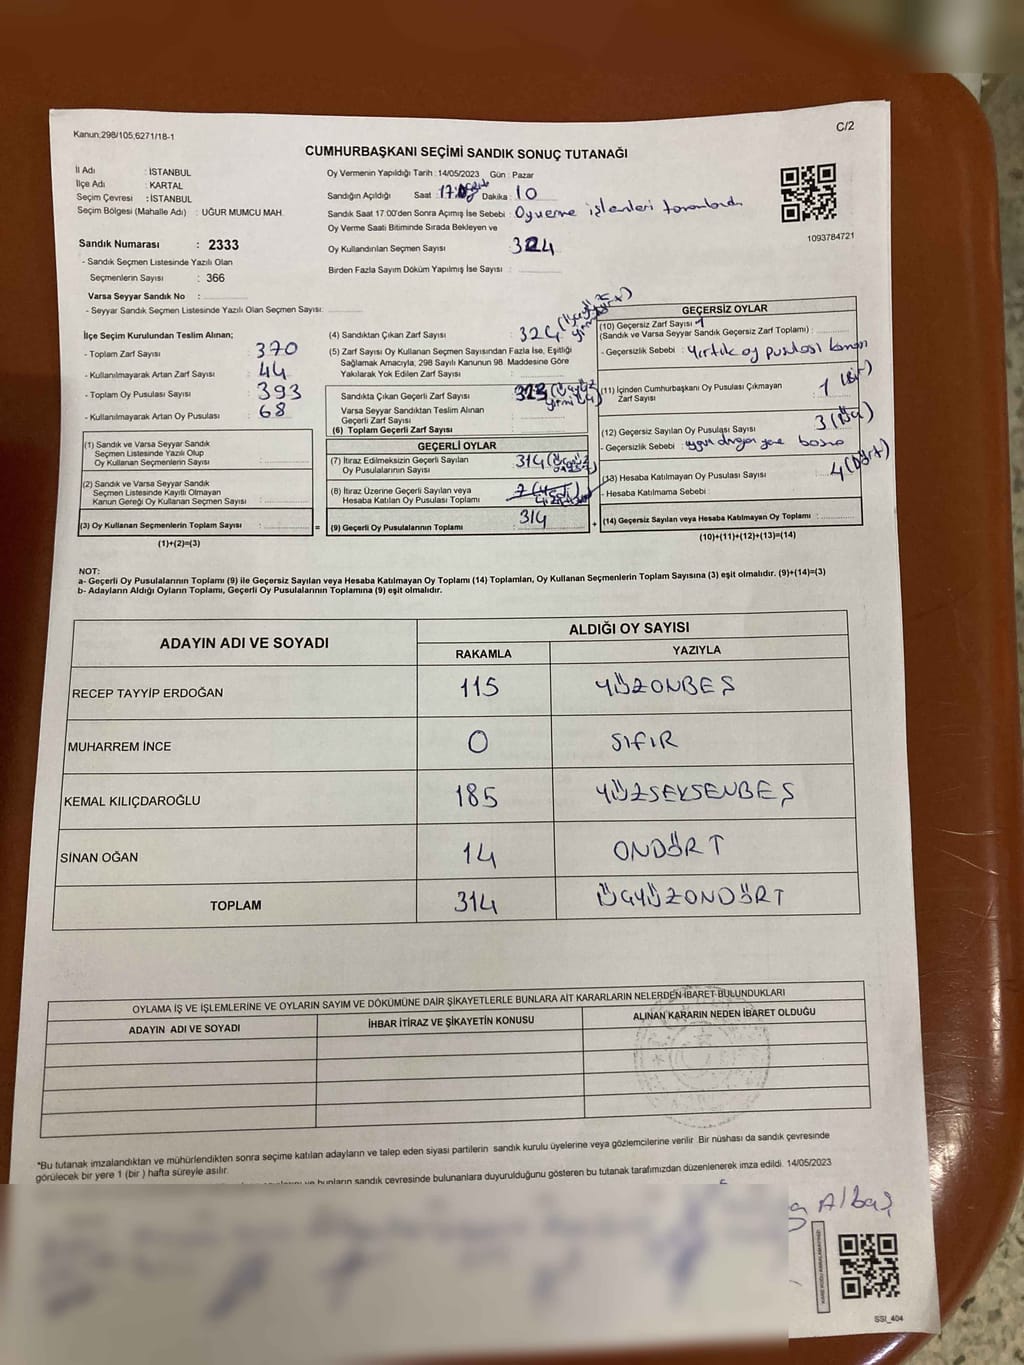 Kanun;298/105,6271/18-1
C/2
CUMHURBAŞKANI SEÇİMİ SANDIK SONUÇ TUTANAĞI
İl Adı : İSTANBUL
İlçe Adı : KARTAL
Seçim Çevresi : İSTANBUL
Seçim Bölgesi (Mahalle Adı) : UĞUR MUMCU MAH.
Sandık Numarası : 2333
- Sandık Seçmen Listesinde Yazılı Olan
Seçmenlerin Sayısı : 366
Varsa Seyyar Sandık No :
- Seyyar Sandık Seçmen Listesinde Yazılı Olan Seçmen Sayısı:
Oy Vermenin Yapıldığı Tarih : 14/05/2023 Gün : Pazar
Sandığın Açıldığı Saat : 17:00 Dakika : 10
Sandık Saat 17:00'den Sonra Açımış İse Sebebi : Oyverme işlemleri
Oy Verme Saati Bitiminde Sırada Bekleyen ve
Oy Kullandırılan Seçmen Sayısı 324
Birden Fazla Sayım Döküm Yapılmış İse Sayısı :
1093784721
İlçe Seçim Kurulundan Teslim Alınan;
- Toplam Zarf Sayısı : 370
- Kullanılmayarak Artan Zarf Sayısı : 44
- Toplam Oy Pusulası Sayısı : 393
- Kullanılmayarak Artan Oy Pusulası : 68
(1) Sandık ve Varsa Seyyar Sandık
Seçmen Listesinde Yazılı Olup
Oy Kullanan Seçmenlerin Sayısı :
(2) Sandık ve Varsa Seyyar Sandık
Seçmen Listesinde Kayıtlı Olmayan
Kanun Gereği Oy Kullanan Seçmen Sayısı :
(3) Oy Kullanan Seçmenlerin Toplam Sayısı : =
(1)+(2)=(3)
(4) Sandıktan Çıkan Zarf Sayısı : 324
(5) Zarf Sayısı Oy Kullanan Seçmen Sayısından Fazla İse, Eşitliği
Sağlamak Amacıyla, 298 Sayılı Kanunun 98. Maddesine Göre
Yakılarak Yok Edilen Zarf Sayısı :
Sandıkta Çıkan Geçerli Zarf Sayısı : 323
Varsa Seyyar Sandıktan Teslim Alınan
Geçerli Zarf Sayısı :
(6) Toplam Geçerli Zarf Sayısı :
GEÇERLİ OYLAR
(7) İtiraz Edilmeksizin Geçerli Sayılan
Oy Pusulalarının Sayısı : 314
(8) İtiraz Üzerine Geçerli Sayılan veya
Hesaba Katılan Oy Pusulaları Toplamı :
(9) Geçerli Oy Pusulalarının Toplamı : 314 +
GEÇERSİZ OYLAR
(10) Geçersiz Zarf Sayısı 1
(Sandık ve Varsa Seyyar Sandık Geçersiz Zarf Toplamı) :
- Geçersizlik Sebebi : Yırtık oy pusulası
(11) İçinden Cumhurbaşkanı Oy Pusulası Çıkmayan
Zarf Sayısı 1 (Bir)
(12) Geçersiz Sayılan Oy Pusulası Sayısı 3 (Üç)
- Geçersizlik Sebebi :
(13) Hesaba Katılmayan Oy Pusulası Sayısı : 4 (Dört)
- Hesaba Katılmama Sebebi :
(14) Geçersiz Sayılan veya Hesaba Katılmayan Oy Toplamı :
(10)+(11)+(12)+(13)=(14)
NOT:
a- Geçerli Oy Pusulalarının Toplamı (9) ile Geçersiz Sayılan veya Hesaba Katılmayan Oy Toplamı (14) Toplamları, Oy Kullanan Seçmenlerin Toplam Sayısına (3) eşit olmalıdır. (9)+(14)=(3)
b- Adayların Aldığı Oyların Toplamı, Geçerli Oy Pusulalarının Toplamına (9) eşit olmalıdır.
ADAYIN ADI VE SOYADI
ALDIĞI OY SAYISI
RAKAMLA YAZIYLA
RECEP TAYYİP ERDOĞAN 115 YÜZONBEŞ
MUHARREM İNCE 0 SIFIR
KEMAL KILIÇDAROĞLU 185 YÜZSEKSENBEŞ
SİNAN OĞAN 14 ONDÖRT
TOPLAM 314 ÜÇYÜZONDÖRT
OYLAMA İŞ VE İŞLEMLERİNE VE OYLARIN SAYIM VE DÖKÜMÜNE DAİR ŞİKAYETLERLE BUNLARA AİT KARARLARIN NELERDEN İBARET BULUNDUKLARI
ADAYIN ADI VE SOYADI İHBAR İTİRAZ VE ŞİKAYETİN KONUSU ALINAN KARARIN NEDEN İBARET OLDUĞU
*Bu tutanak imzalandıktan ve mühürlendikten sonra seçime katılan adayların ve talep eden siyasi partilerin sandık kurulu üyelerine veya gözlemcilerine verilir. Bir nüshası da sandık çevresinde
görülecek bir yere 1 (bir ) hafta süreyle asılır.
ve bunların sandık çevresinde bulunanlara duyurulduğunu gösteren bu tutanak tarafımızdan düzenlenerek imza edildi. 14/05/2023
Albaş
SSI_404